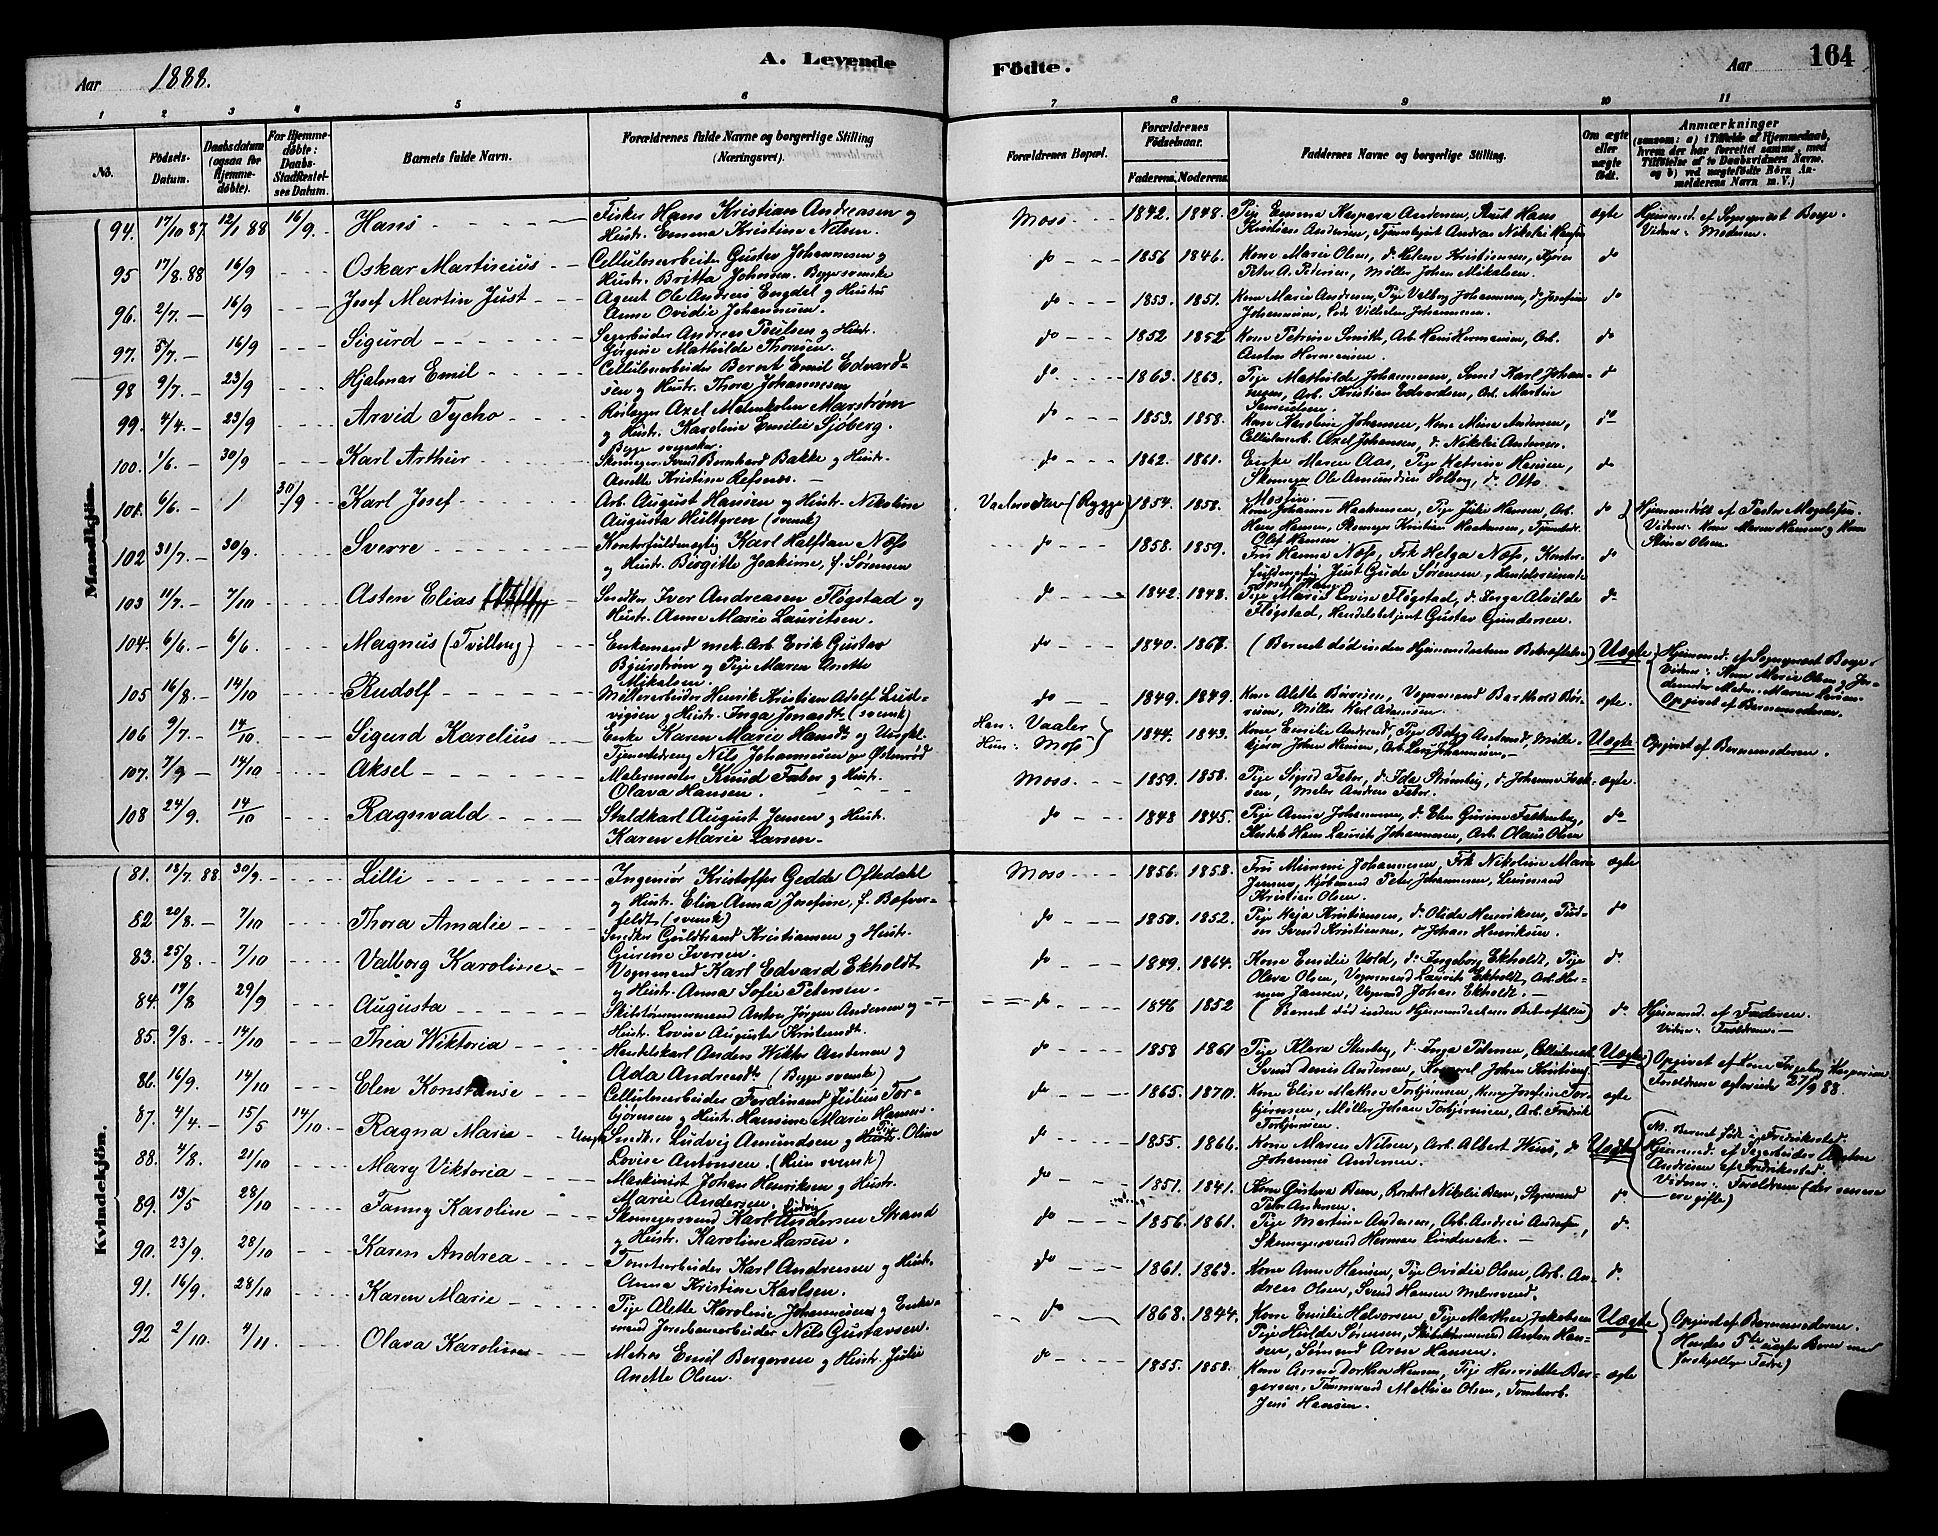 Aar 1888. A. Levende
Födte. Aar 164
1 2 3 4 5 6 7 8 9 10 11
No. Födsels-Datum. Daabsdatum (ogsaa for Hjemme-døbte). For Hjemme-døbte: Daabs-Stadfæstel-ses Datum. Barnets fulde Navn. Forældrenes fulde Navne og borgerlige Stilling (Næringsvei).
Forældrenes Bopæl. Forældrenes Födselsaar. Faderens. Moderens. Faddernes Navne og borgerlige Stilling. Om ægte eller uægte født. Anmærkninger (saasom: a) i Tilfælde af Hjemmedaab, hvem der har forrettet samme, med Tilføielse af to Daabsvidners Navne, og b) ved uægtefødte Börn An-melderens Navn m. V.)
Mandkjön.
94. 17/10 87 12/1 88 16/9. Hans Fisker Hans Kristian Andreasen og
Hustr. Emma Kristine Nilsen.
Moss 1842. 1848. Pige Emma Kaspara Andersen, Hans
Kristian Andersen, Andreas Nikolai Hansen
ægte Hjemmed. af
Vidner: Moderen.
95 17/8. 88 16/9 Oskar Martinius Cellulosearbeider Gustav Johannesen og
Hustr. Britta Johnsen. Begge svenske
do 1856 1846. Kone Marie Olsen, do Helene Kristiansen,
Peter A. Pedersen, Møller Johan Mikalsen.
do
96. 2/7. — 16/9 Josef Martin Just Agent Ole Andreas Engdel og Hustru
Anne Ovidie Johannesen.
do 1853. 1851. Kone Marie Andersen, Pige Valborg Johannesen, do Josefine
Johannesen, Vilhelm Johannesen.
do
97. 5/7. — 16/9 Sigurd Sagarbeider Andreas Poulsen og Hustr.
Jørgine Mathilde Thoresen.
do 1852 1852 Kone Petrine Smith, Arb. Hans Hermansen, Arb.
Anton Hermansen.
do
98 9/7. — 23/9 Hjalmar Emil Cellulosearbeider Bernt Emil Edvard-
sen og Hustr. Thora Johannesen
do 1863. 1863. Pige Mathilde Johannesen, Karl Johan-
nesen, Arb. Kristian Edvardsen, Arb. Martin
Samuelsen.
do
99. 4/4. — 23/9 Arvid Tycho Axel Malmkolm Marstrøm
og Hustr. Karoline Emilie Sjöberg.
Begge svenske.
do 1853. 1858. Kone Karoline Johansen, Kone Mina Andersen,
Cellulosearb. Axel Johansen, do Nikolai Andersen.
do
100. 1/6. — 30/9 Karl Arthur Skomager Svend Bernhard Bakke og Hustr.
Anette Kristine Refsnes.
do 1862. 1861. Enke Maren Aas, Pige Katrine Hansen,
Skomager Ole Amundsen Solberg, do Otto
do
101. 6/6. — 30/9 Karl Josef Arb. August Hansen og Hustr. Nikoline
Augusta Hultgren (svensk)
(Rygge) 1854. 1858. Kone Johanne Haakensen, Pige Julie Hansen, Arb.
Hans Hansen, Skomager Kristian Haakensen,
Olaf Hansen
do Hjemmedöbt af
Vidner: Kone Maren Hansen og Kone
Stina Olsen.
102 31/7. — 30/9. Sverre Kontorfuldmægtig Karl Halfdan Næss
og Hustr. Birgitte Joakime, f. Sörensen
do 1858. 1859. Fru Hanna Næss, Frk Helga Næss, Kontor-
fuldmægtig Just Gude Sørensen
do
103 11/7. — 7/10 Asten Elias Snedker Iver Andreasen Flögstad og
Hustr. Anne Marie Lauritsen.
do 1842. 1848. Pige Marie Lovise Flögstad, do Inga Alvilde
Flögstad, Handelsbetjent Gustav Gundersen.
do
104. 6/6. — 6/6. Magnus (Tvilling) Enkemand mek. Arb. Erik Gustav
Bjurström og Pige Maren Anette
Mikalsen.
do 1840. 1867. (Barnet död inden Hjemmedaabens Bekræftelse) Uægte Hjemmed. af
Vidner: Kone Marie Olsen og
Maren Larsen
Opgivet af Barnemoderen.
105 16/8. — 14/10 Rudolf Henrik Kristian Adolf Lud-
vigsen og Hustr. Inga Jonasdtr (svensk)
do 1849. 1849. Kone Alette Börresen, Vognmand Barthold Bör-
resen, Møller Karl Adamsen.
ægte.
106 9/7. — 14/10. Sigurd Karelius Enke Karen Marie Hansdtr og Ungkl.
Tjenestedreng Nils Johannesen Østenröd
Han: Vaaler
Hun: Moss
1844. 1843. Kone Emilie Andresdtr, Pige
Uægte Opgivet af Barnemoderen.
107. 7/9 — 14/10 Aksel Malermester Knud Faber og Hustr.
Olava Hansen.
Moss 1859. 1858. Pige Sigrid Faber, do Ida Strømberg, do Johanne
Maler Andreas Faber.
ægte.
108 24/9. 14/10 Ragnvald Staldkarl August Jensen og Hustr.
Karen Marie Larsen.
do 1848 1845. Pige Anna Johannesen, do Elen Gurine Falkenberg,
Hans Laurits Johannesen, Arb. Olaus Olsen
do
Kvindekjön.
81. 18/7. 88 30/9. Lilli Ingeniør Kristoffer Gedde Oftedahl
og Hustr. Elin Anna Josefine, f. Bæfver-
feldt (svensk)
Moss 1856. 1858. Fru Mimmi Johannesen, Frk Nikoline Marie
Jensen, Kjøbmand Peter Johannesen,
Kristian Olsen.
ægte
82 20/8. — 7/10 Thora Amalie Snedker Guldbrand Kristiansen og Hustr.
Gurine Iversen.
do 1850. 1852. Pige Kaja Kristiansen, do Olida Henriksen,
Svend Kristiansen, do Johan Henriksen.
do
83. 25/8. — 7/10 Valborg Karoline Vognmand Karl Edvard Ekholdt
og Hustr. Anna Sofie Petersen.
do 1849. 1864. Kone Emilie Vold, do Ingeborg Ekholdt, Pige
Olava Olsen, Vognmand Laurits Ekholdt, Arb. Her-
man Jansen, Vognmand Johan Ekholdt.
do
84. 17/8 29/9 Augusta Skibstømmermand Anton Jörgen Andersen og
Hustr. Lovise Augusta Kristiansdtr.
do 1846 1852 (Barnet död inden Hjemmedaabens Bekræftelse) do Hjemmed. af Faderen.
Vidner: Forældrene.
85. 9/8. 14/10 Thea Viktoria Handelskarl Anders Viktor Andersen og
Ada Andreasdtr (Begge svenske)
do 1858 1861 Pige Klara Stenberg, do Inga Petersen,
Svend Denis Andersen, Johan Kristiansen
Uægte Opgivet af Kone Ingeborg Kasperien
Forældrene ægteviede 27/9 88.
86. 16/9. 14/10 Elen Konstanse Cellulosearbeider Ferdinand Julius Tor-
björnsen og Hustr. Hansine Marie Hansen.
do 1865. 1870. Kone Elise Mathea Torbjørnsen, Kone Josefine Tor-
björnsen, Møller Johan Torbjørnsen, Arb. Fredrik
Torbjørnsen
ægte
87. 4/4. — 15/5 14/10. Ragna Marie Ungk. Snedk. Ludvig Amundsen og Pige Oline
Lovise Antonsen. (Hun svensk)
do 1855. 1866. Kone Maren Nilsen, Arb. Albert Wiis, do
Johannes Andersen.
Uægte NB. Barnet født i Fredrikstad.
Hjemmed. af Sagarbeider Anton
Andresen af Fredrikstad.
Vidner: Forældrene (der senere
ere gifte)
88. 4/8. 21/10 Mary Viktoria Maskinist Johan Henriksen og Hustr.
Marie Andersen.
do 1851. 1841. Kone Gustava Bem, Nikolai Bem, Styrmand
Peter Andersen.
do
89. 13/5 28/10 Fanny Karoline Skomagersvend Karl Ludvig Andersen Strand
og Hustr. Karoline Larsen.
do 1856. 1861. Pige Martine Andersen, Arb. Andreas Andersen,
Skomagersvend Herman Lindmark.
do
90. 23/9. 28/10 Karen Andrea Tomtearbeider Karl Andresen og Hustr.
Anna Kristine Karlsen.
do 1861. 1863. Kone Anne Hansen, Pige Ovidia Olsen, Arb. An-
dreas Olsen, Svend Hansen
do
91. 16/9. 28/10 Karen Marie Pige Alette Karoline Johannesen og Enke-
mand Jernbanearbeider Nils Gustavsen.
do 1868. 1844. Kone Emilie Halvorsen, Pige Marthea Jakobsen
Pige Hilda Sørensen, Skibstømmermand Anton Han-
sen, Sömand Aron Hansen.
Uægte Opgivet af Barnemoderen.
Hendes 5te uægte Barn med
forskjellige Fædre)
92 2/10. 4/11 Olava Karoline Matros Emil Bergersen og Hustr. Julie
Anette Olsen.
do 1855. 1858. Kone Anne Dorthea Hansen, Pige Henriette Ber-
gersen, Tømmermand Mathias Olsen, Tomtearb.
Jens Hansen.
ægte